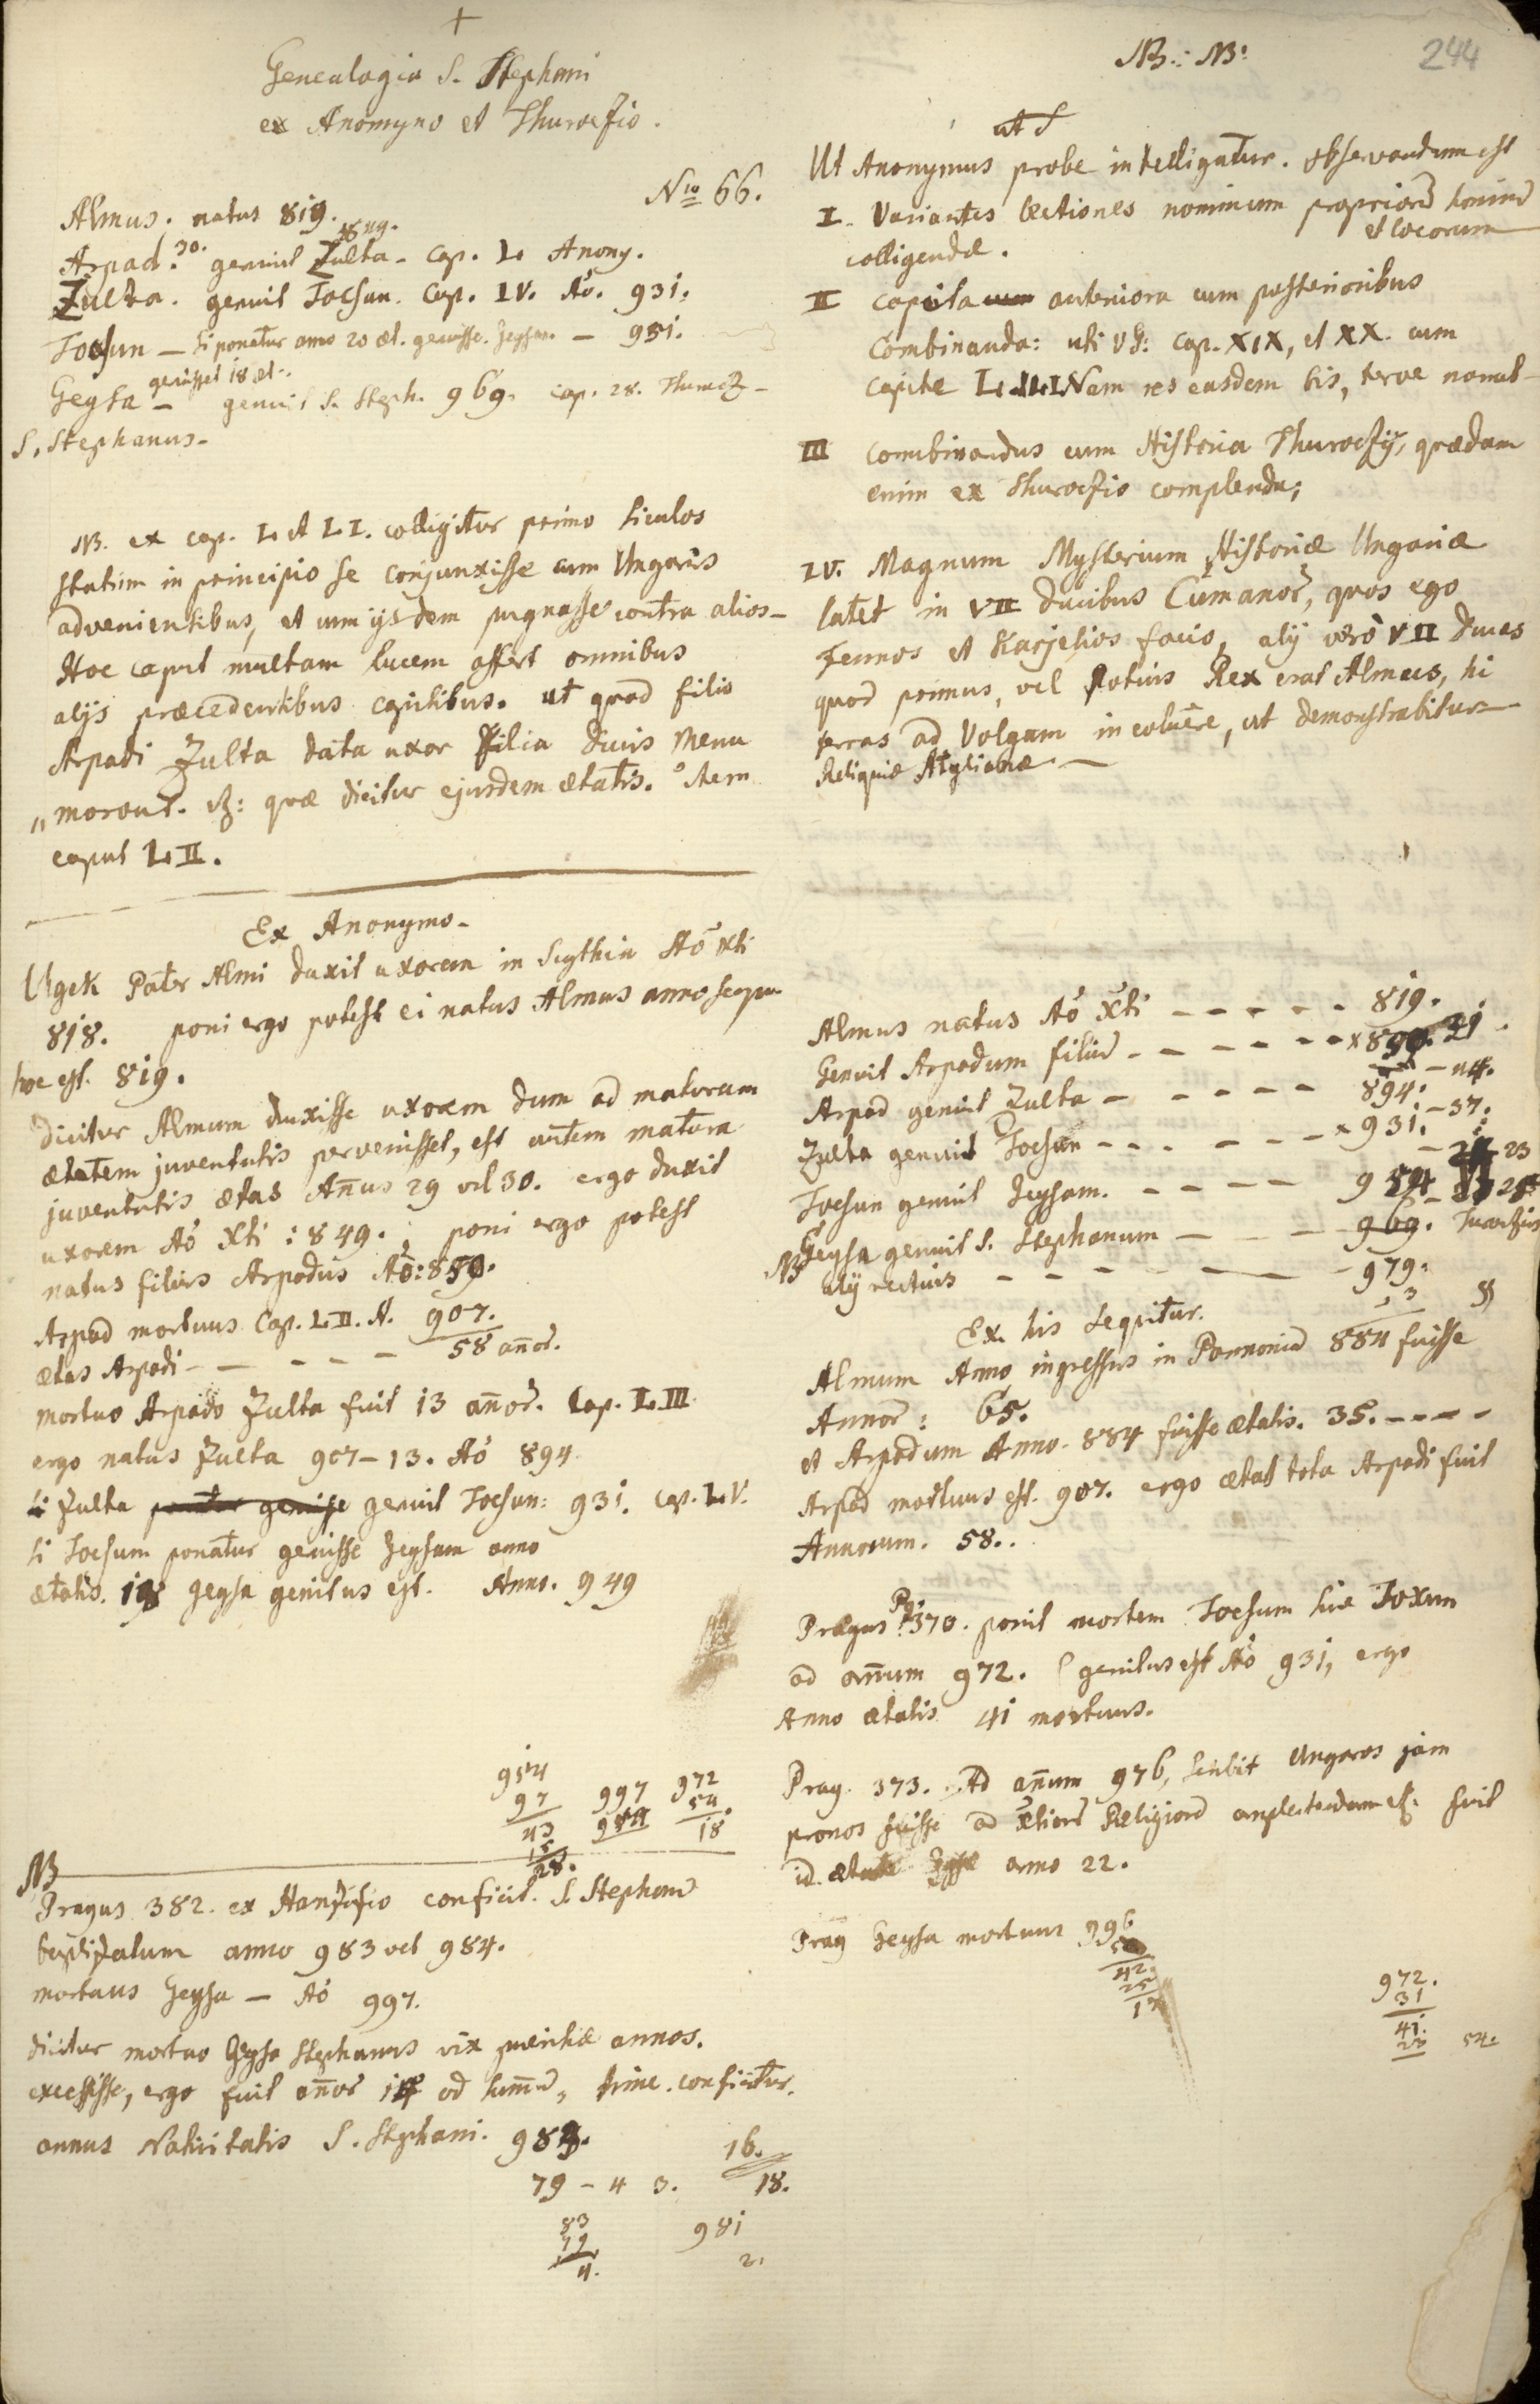 +
Genealogia S. Stephani
ex Anomyno et Thuroczio.
Nro 66.
Almus. natus 819.
Arpad. 30. genuit Zulta - Cap. L. Anony.
Zulta. genuit Tocsun. Cap. LV. Aō. 931.
Tocsun — si ponatur anno 20 æt. genuisse. Zeysam. — 951.
genuisset 18 æt.
Geysa — genuit S. Steph. 969. cap. 28. Thurocz -
S. Stephanus -
NB. ex cap. L. et LI. colligitur primo Siculos
statim in principio se conjunxisse cum Ungaris
advenientibus, et cum ijsdem pugnasse contra alios -
Hoc caput multam lucem affert omnibus
alijs præcedentibus capitibus. ut quod filio
Arpadi Zulta data uxor filia Ducis Menu
„ morout. quæ dicitur ejusdem ætatis. Item
caput LII.
Ex Anonymo -
Ugek Pater Almi duxit uxorem in Scythia Aō Xti
818. poni ergo potest ei natus Almus anno sequ
hoc est. 819.
dicitur Almum duxisse uxorem dum ad maturam
ætatem juventutis pervenisset, est autem matura
juventutis ætas Anus 29 vel 30. ergo duxit
uxorem Aō Xti : 849. ; poni ergo potest
natus filius Arpadus Aō: 850.
Arpad mortuus Cap. LII. A. 907.
ætas Arpadi - — - - - — 58 anor.
mortuo Arpado Zulta fuit 13 anor. Cap. LIII
ergo natus Zulta 907 - 13. Aō 894
si Zulta genuit Tocsun: 931. cap. LV.
si Tocsum ponatur genuisse Zeysam anno
ætatis. 18 Zeysa genitus est. Anno. 949
954
97
43
15
28.
997
954
972
54
18.
NB
Pragus 382. ex Hanfizio conficit. S. Stephanu
baptizatum anno 983 vel 984.
mortuus Geysa — Aō 997.
dicitur mortuo Geysa Stephanus vix pueritiæ annos.
excessisse, ergo fuit anor 14 ad summu, hinc. conficitur.
annus Nativitatis S. Stephani. 983.
79 - 4 3.
16.
18.
83
79
4.
981
2.
NB.: NB:
244
ut S
Ut Anonymus probe intelligatur. observandum est
I. Variantes lectiones nominum propriorū hominū
et locorum
colligendæ.
II Capita anteriora cum posterioribus
Combinanda: uti cap. XIX, et XX. cum
capite L. LI. Nam res easdem bis, terve narrat -
III combinandus cum Historia Thuroczij, quædam
enim ex Thuroczio complenda;
IV. Magnum Mysterium Historiæ Ungariæ
latet in VII ducibus Cumanor, quos ego
Fennos et Karjelios facio, alij vero VII Duces
quod primus, vel potius Rex erat Almus, hi
terras ad Volgam incoluere, ut demonstrabitur —
Reliquiæ Atylianæ —
Almus natus Aō Xti - - - - - 819.
Genuit Arpadum filiū - - - - - - x 31.
Arpad genuit Zulta - - - - - 894. - 44.
Zulta genuit Tocsun - - - - - - x 931. - 37.
Tocsun genuit Zeysam. - - - - 954 - 23
NB Geysa genuit S. Stephanum - - - 969. Thuroczius
alij rectius - - - - - - 979.
Ex his sequitur.
Almum Anno ingressus in Pannoniā 884 fuisse
Annor: 65.
et Arpadum Anno. 884 fuisse ætatis. 35. - - - -
Arpad mortuus est. 907. ergo ætas tota Arpadi fuit
Annorum. 58..
Pragus Pg. 370. ponit mortem Tocsum sive Toxum
ad anum 972. (genitus est Aō 931, ergo
Anno ætatis 41 mortuus.
Prag. 373. Ad anum 976, scribit Ungaros jam
pronos fuisse ad Xtianā Religionē amplectendam fuit
id. anno 22.
Prag Geysa mortuus 996
42
25
17
972.
31
41.
54.